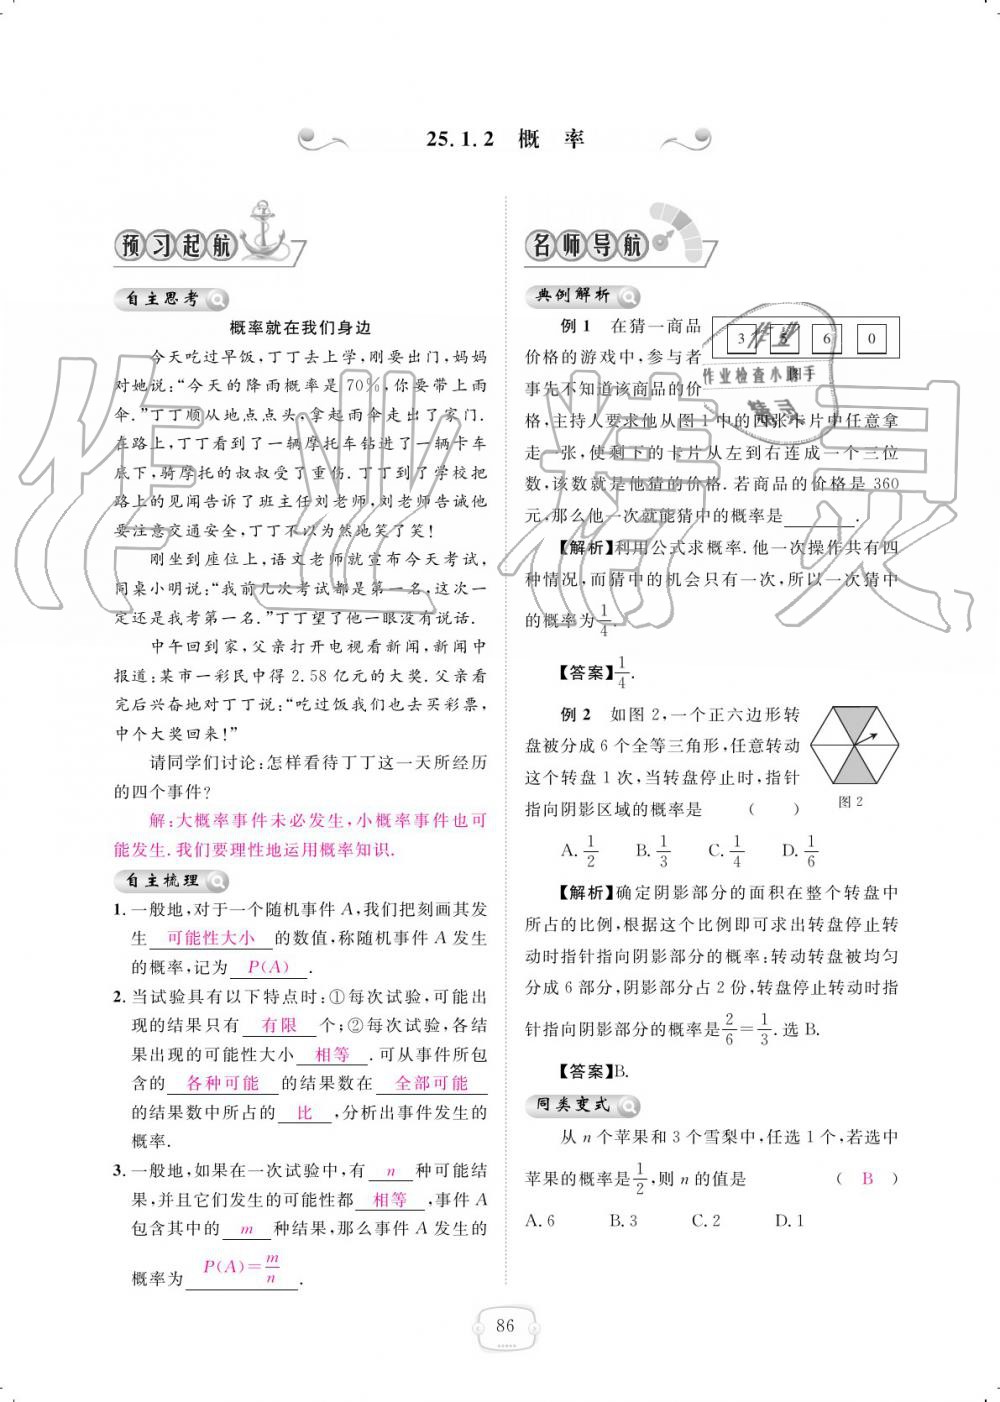 25.1.2 概 率
预习起航
自主思考
概率就在我们身边
今天吃过早饭,丁丁去上学,刚要出门,妈妈
对她说:“今天的降雨概率是70%,你要带上雨
伞.”丁丁顺从地点点头,拿起雨伞走出了家门.
在路上,丁丁看到了一辆摩托车钻进了一辆卡车
底下,骑摩托的叔叔受了重伤.丁丁到了学校把
路上的见闻告诉了班主任刘老师,刘老师告诫他
要注意交通安全,丁丁不以为然地笑了笑!
刚坐到座位上,语文老师就宣布今天考试,
同桌小明说:“我前几次考试都是第一名,这次一
定还是我考第一名.”丁丁望了他一眼没有说话.
中午回到家,父亲打开电视看新闻,新闻中
报道:某市一彩民中得2.58亿元的大奖.父亲看
完后兴奋地对丁丁说:“吃过饭我们也去买彩票,
中个大奖回来!”
请同学们讨论:怎样看待丁丁这一天所经历
的四个事件?
解:大概率事件未必发生,小概率事件也可
能发生.我们要理性地运用概率知识.
自主梳理
1.一般地,对于一个随机事件A,我们把刻画其发
生 可能性大小 的数值,称随机事件A发生
的概率,记为 P(A) .
2.当试验具有以下特点时:①每次试验,可能出
现的结果只有 有限 个;②每次试验,各结
果出现的可能性大小 相等 .可从事件所包
含的 各种可能 的结果数在 全部可能
的结果数中所占的 比 ,分析出事件发生的
概率.
3.一般地,如果在一次试验中,有 n 种可能结
果,并且它们发生的可能性都 相等 ,事件A
包含其中的 m 种结果,那么事件A发生的
概率为 P(A)=m/n .
名师导航
典例解析
例1 在猜一商品
价格的游戏中,参与者
事先不知道该商品的价
格,主持人要求他从图1中的四张卡片中任意拿
走一张,使剩下的卡片从左到右连成一个三位
数,该数就是他猜的价格.若商品的价格是360
元,那么他一次就能猜中的概率是 .
3 5 6 0
作业
作业检查小助手
精灵
【解析】利用公式求概率.他一次操作共有四
种情况,而猜中的机会只有一次,所以一次猜中
的概率为1/4.
【答案】1/4.
例2 如图2,一个正六边形转
盘被分成6个全等三角形,任意转动
这个转盘1次,当转盘停止时,指针
指向阴影区域的概率是 ( )
图2
A.1/2 B.1/3 C.1/4 D.1/6
【解析】确定阴影部分的面积在整个转盘中
所占的比例,根据这个比例即可求出转盘停止转
动时指针指向阴影部分的概率:转动转盘被均匀
分成6部分,阴影部分占2份,转盘停止转动时指
针指向阴影部分的概率是2/6=1/3.选B.
【答案】B.
同类变式
从n个苹果和3个雪梨中,任选1个,若选中
苹果的概率是1/2,则n的值是 ( B )
A.6 B.3 C.2 D.1
作业精灵
86